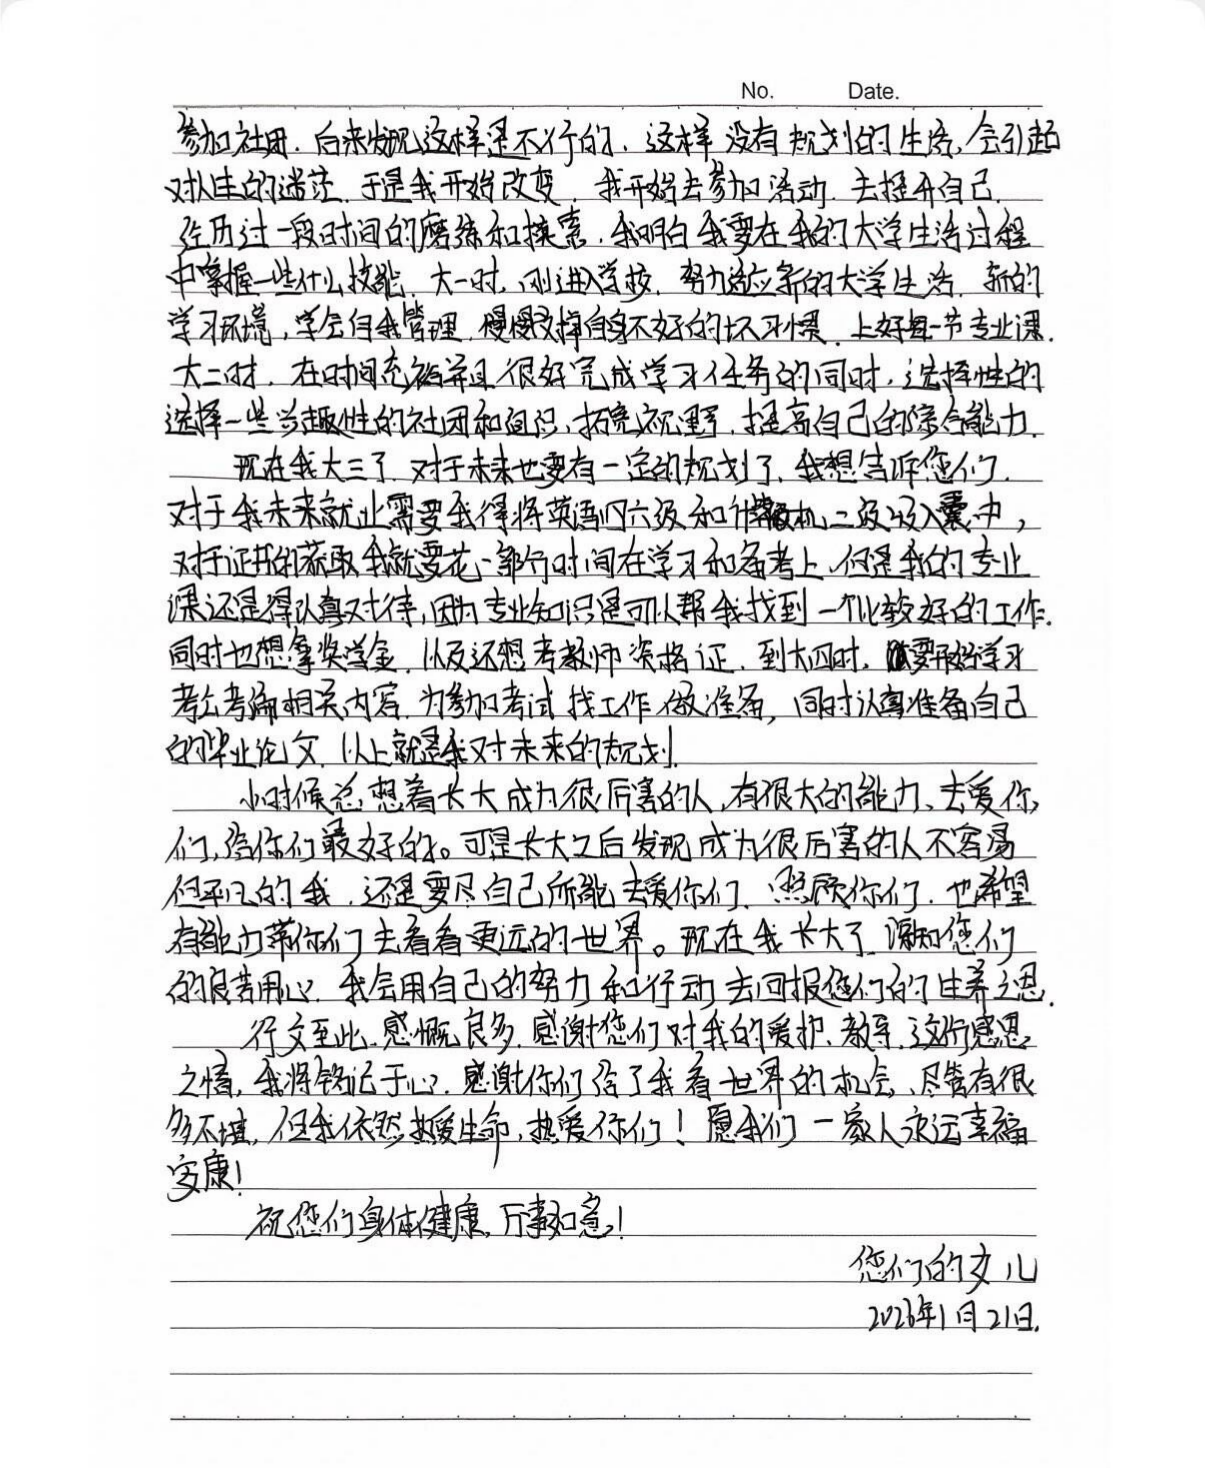 No. Date.
参加社团. 后来发现这样是不行的. 这样没有规划的生活, 会引起
对人生的迷茫. 于是我开始改变. 我开始去参加活动. 去提升自己.
经历过一段时间的磨练和摸索. 我明白我要在我的大学生活过程
中掌握一些什么技能. 大一时. 刚进入学校. 努力适应新的大学生活. 新的
学习环境, 学会自我管理. 慢慢改掉自身不好的坏习惯. 上好每一节专业课.
大二时. 在时间充裕并且很好完成学习任务的同时, 选择性的
选择一些兴趣性的社团和组织, 拓宽视野, 提高自己的综合能力.
现在我大三了. 对于未来也要有一定的规划了. 我想告诉您们.
对于我未来就业需要我得将英语四六级和计算机二级收入囊中,
对于证书的获取我就要花一部分时间在学习和备考上. 但是我的专业
课还是得认真对待, 因为专业知识是可以帮我找到一个比较好的工作.
同时也想拿奖学金. 以及还想考教师资格证. 到大四时, 要开始学习
考公考编相关内容. 为参加考试找工作做准备, 同时认真准备自己
的毕业论文. 以上就是我对未来的规划.
小时候总想着长大成为很厉害的人, 有很大的能力、去爱你
们, 给你们最好的。可是长大之后发现成为很厉害的人不容易
但平凡的我. 还是要尽自己所能去爱你们. 照顾你们. 也希望
有能力带你们去看看更远的世界。现在我长大了. 深知您们
的良苦用心. 我会用自己的努力和行动去回报您们的生养之恩.
行文至此. 感慨良多. 感谢您们对我的爱护、教导. 这份感恩
之情. 我将铭记于心. 感谢你们给了我看世界的机会、尽管有很
多不堪, 但我依然热爱生命, 热爱你们! 愿我们一家人永远幸福
安康!
祝您们身体健康, 万事如意!
您们的女儿
2026年1月21日.